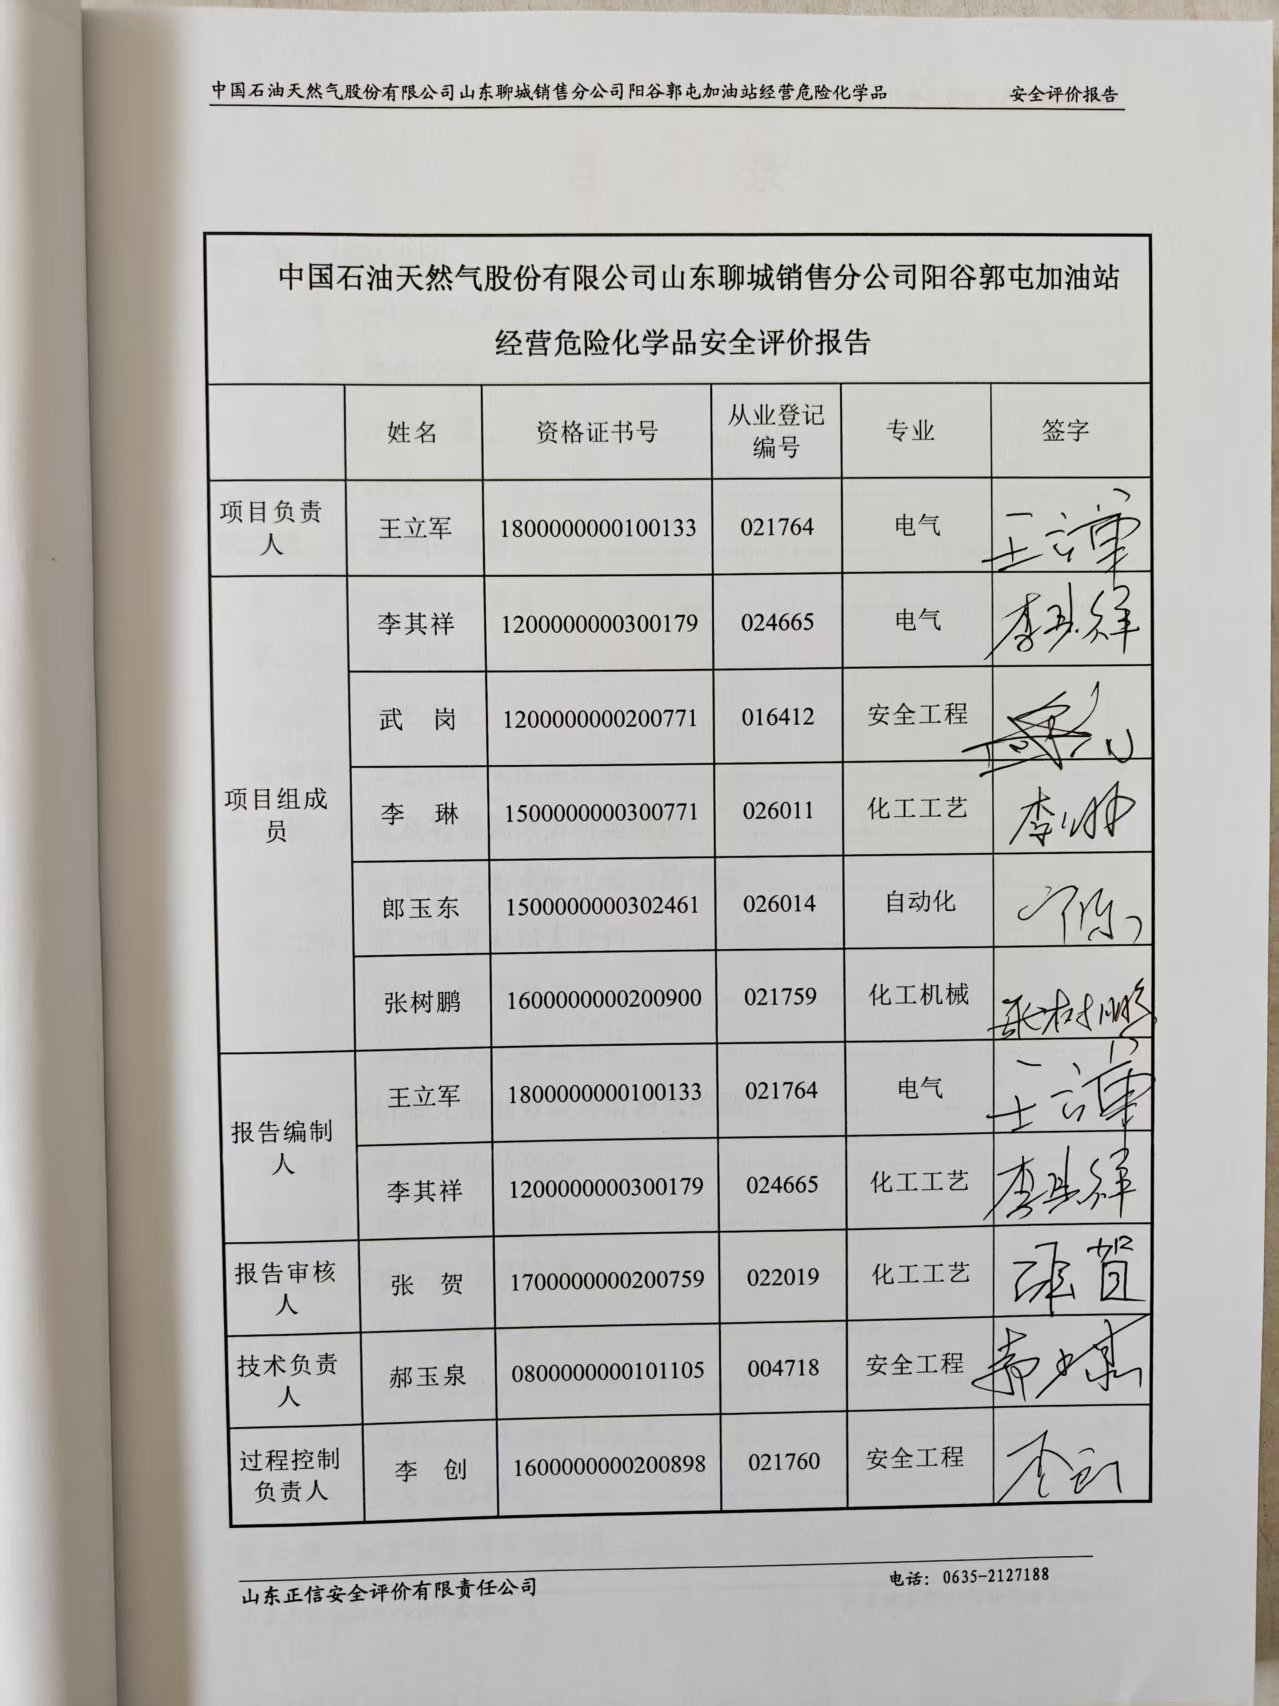 中国石油天然气股份有限公司山东聊城销售分公司阳谷郭屯加油站经营危险化学品 安全评价报告
中国石油天然气股份有限公司山东聊城销售分公司阳谷郭屯加油站
经营危险化学品安全评价报告
姓名 资格证书号 从业登记编号 专业 签字
项目负责人 王立军 1800000000100133 021764 电气 王立军
项目组成员 李其祥 1200000000300179 024665 电气 李其祥
武 岗 1200000000200771 016412 安全工程
李 琳 1500000000300771 026011 化工工艺 李琳
郎玉东 1500000000302461 026014 自动化
张树鹏 1600000000200900 021759 化工机械 张树鹏
报告编制人 王立军 1800000000100133 021764 电气 王立军
李其祥 1200000000300179 024665 化工工艺 李其祥
报告审核人 张 贺 1700000000200759 022019 化工工艺 张贺
技术负责人 郝玉泉 0800000000101105 004718 安全工程
过程控制负责人 李 创 1600000000200898 021760 安全工程 李创
山东正信安全评价有限责任公司 电话：0635-2127188